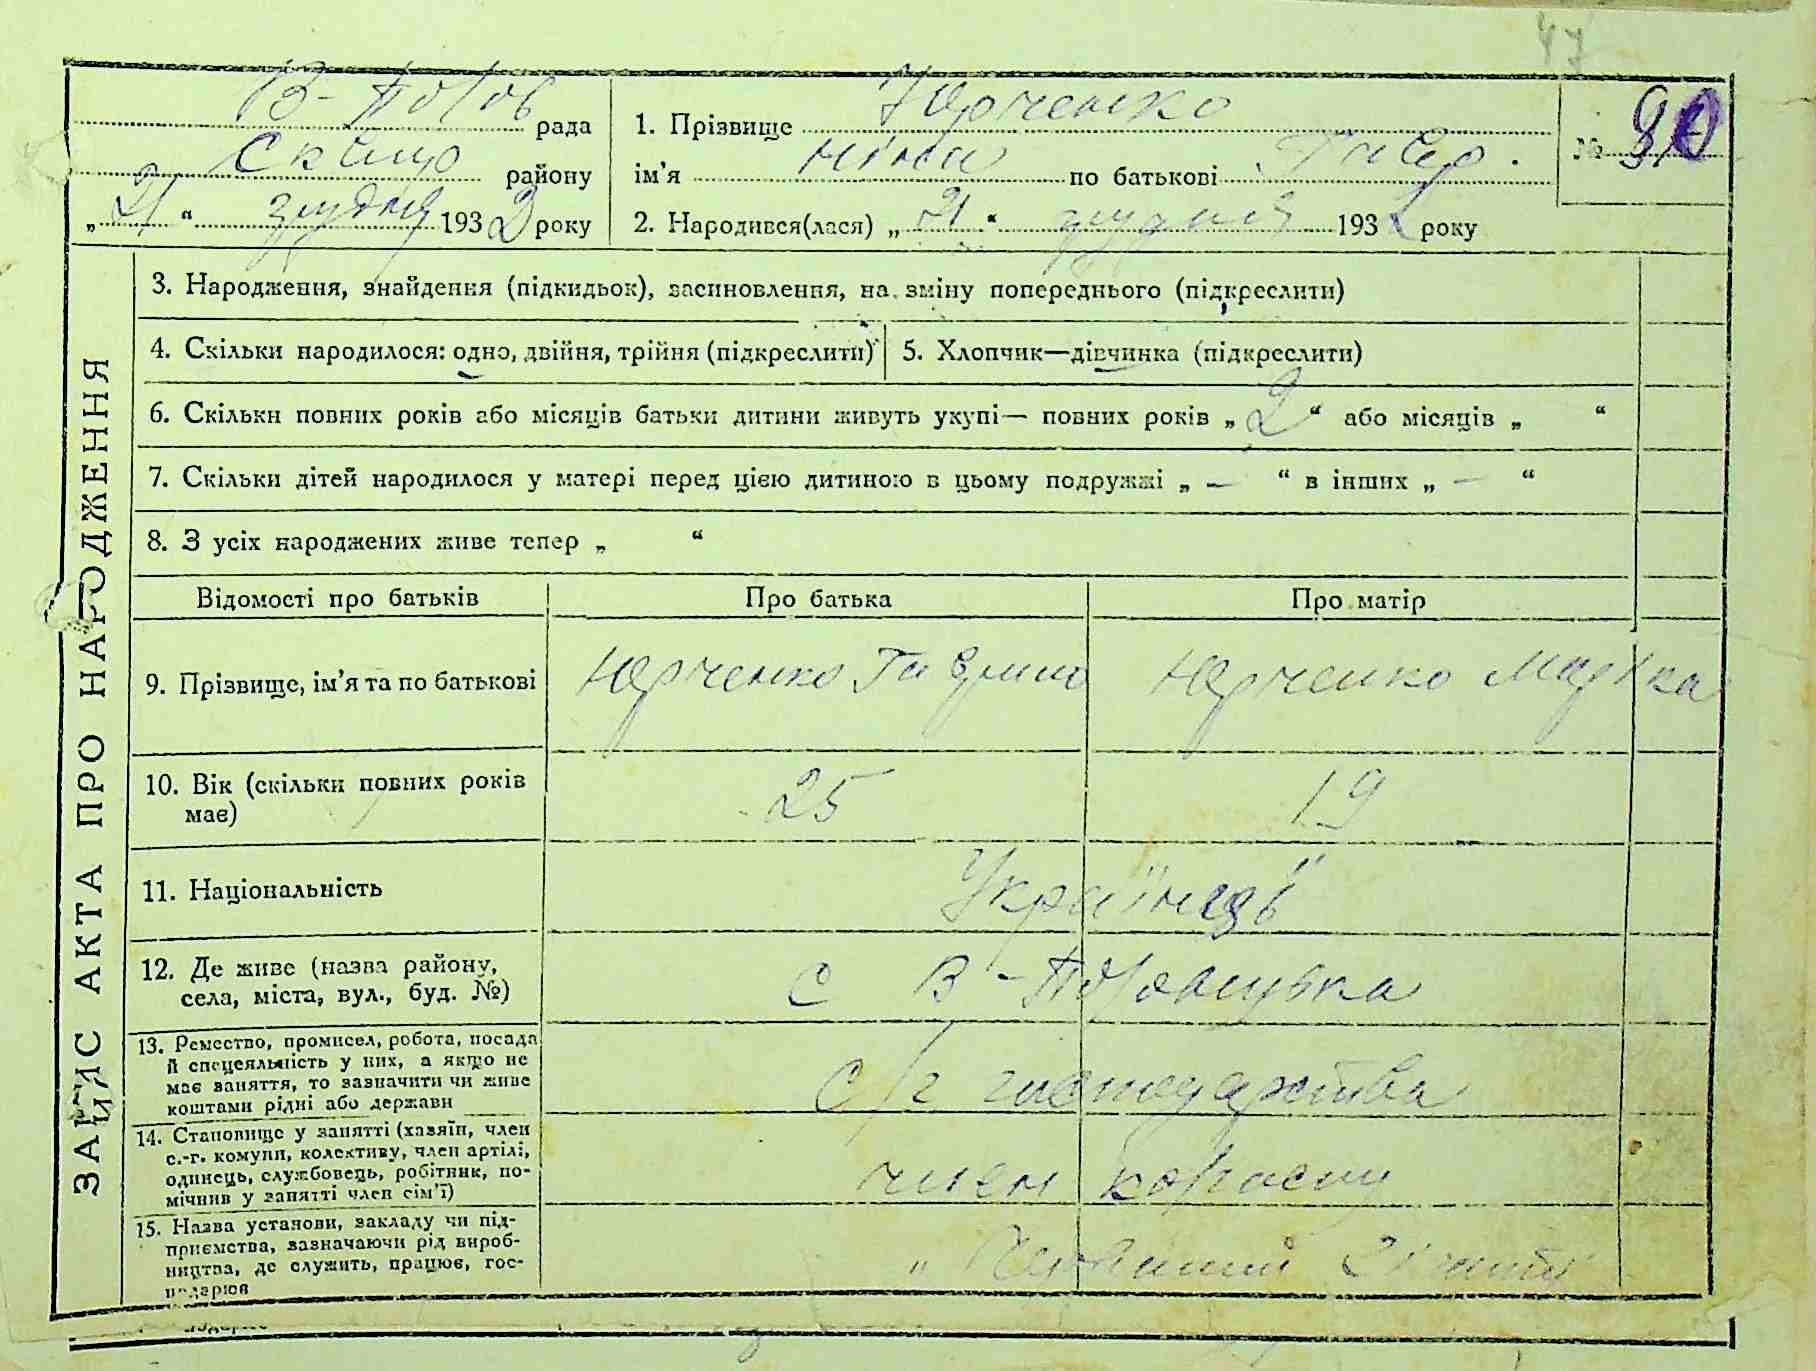 47
В-Полов рада
району
„21“ грудня 1932 року
1. Прізвище Юрченко
ім’я Ніна по батькові Гавр.
2. Народився(лася) „21“ грудня 1932 року
№
ЗАПИС АКТА ПРО НАРОДЖЕННЯ
3. Народження, знайдення (підкидьок), засиновлення, на зміну попереднього (підкреслити)
4. Скільки народилося: одно, двійня, трійня (підкреслити)
5. Хлопчик—дівчинка (підкреслити)
6. Скільки повних років або місяців батьки дитини живуть укупі— повних років „2“ або місяців „ “
7. Скільки дітей народилося у матері перед цією дитиною в цьому подружжі „ — “ в інших „ — “
8. З усіх народжених живе тепер „ “
Відомості про батьків Про батька Про матір
9. Прізвище, ім’я та по батькові Юрченко Гаврило Юрченко Марійка
10. Вік (скільки повних років 25 19
має)
11. Національність Українці
12. Де живе (назва району, с В-
села, міста, вул., буд. №)
13. Ремество, промисел, робота, посада
й спецеяльність у них, а якщо не
має заняття, то зазначити чи живе
коштами рідні або держави
с/г господарства
14. Становище у занятті (хазяїн, член
с.-г. комуни, колективу, член артілі,
одинець, службовець, робітник, по-
мічнив у занятті член сім’ї)
член колгоспу
15. Назва установи, закладу чи під-
приємства, зазначаючи рід вироб-
ництва, де служить, працює, гос-
подарює
„